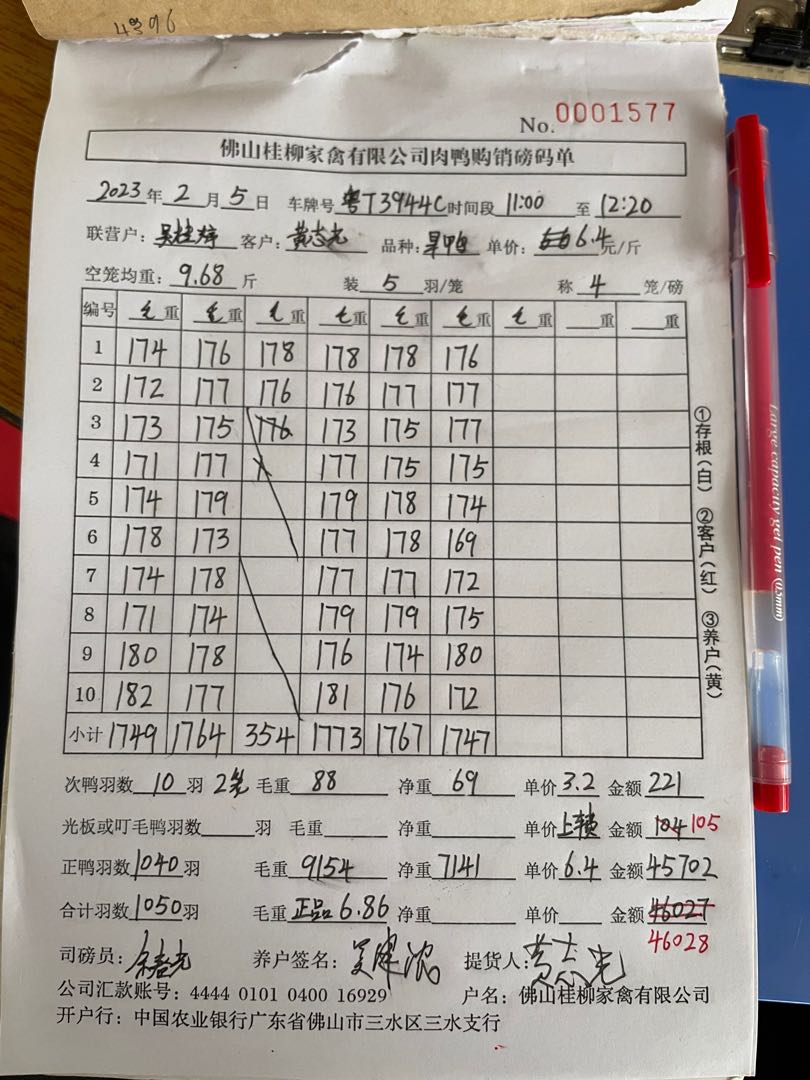 4396
No. 0001577
佛山桂柳家禽有限公司肉鸭购销磅码单
2023年 2 月 5 日 车牌号 粤T3944C 时间段 11:00 至 12:20
联营户: 吴桂婷 客户: 黄志光 品种: 单价: 6.4 元/斤
空笼均重: 9.68 斤 装 5 羽/笼 称 4 笼/磅
编号 毛重 毛重 毛重 毛重 毛重 毛重 毛重 重 重
1 174 176 178 178 178 176
2 172 177 176 176 177 177
3 173 175 176 173 175 177
4 171 177 177 175 175
5 174 179 179 178 174
6 178 173 177 178 169
7 174 178 177 177 172
8 171 174 179 179 175
9 180 178 176 174 180
10 182 177 181 176 172
小计 1749 1764 354 1773 1767 1747
次鸭羽数 10 羽 2笼 毛重 88 净重 69 单价 3.2 金额 221
光板或叮毛鸭羽数 羽 毛重 净重 单价 金额 104 105
正鸭羽数 1040 羽 毛重 9154 净重 7141 单价 6.4 金额 45702
合计羽数 1050 羽 毛重 正品 6.86 净重 单价 金额 46027
46028
司磅员: 养户签名: 提货人: 黄志光
公司汇款账号: 4444 0101 0400 16929 户名: 佛山桂柳家禽有限公司
开户行: 中国农业银行广东省佛山市三水区三水支行
①存根(白) ②客户(红) ③养户(黄)
Large capacity gel pen (0.5mm)